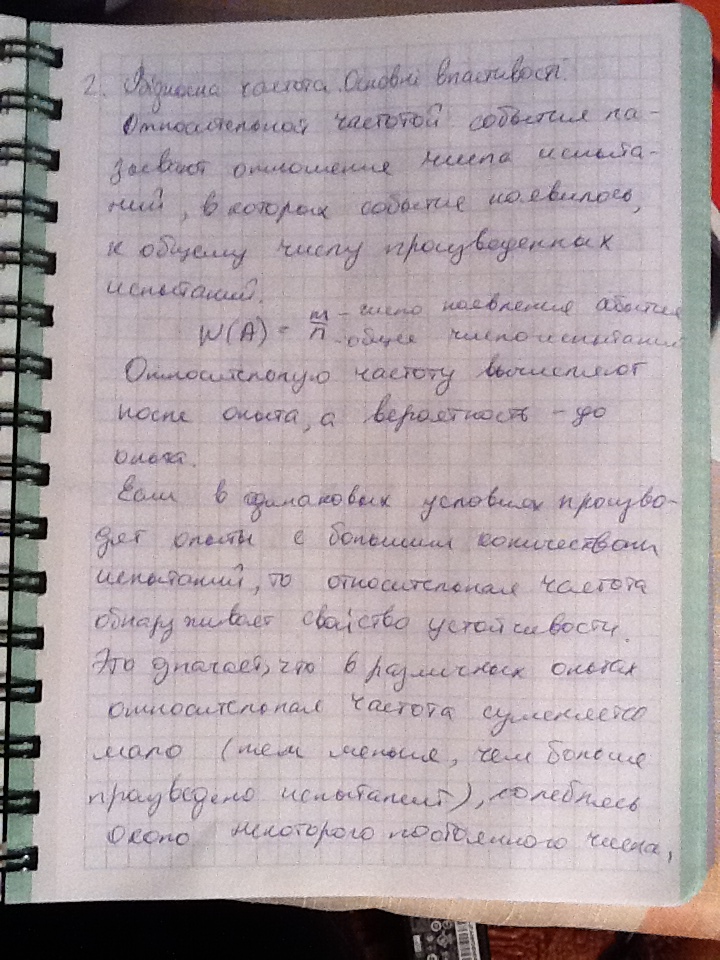 2. Відносна частота. Основні властивості.
Относительной частотой события на-
зывают отношение числа испыта-
ний, в которых событие появилось,
к общему числу произведенных
испытаний.
W(A) = m/n - число появление события
- общее число испытаний
Относительную частоту вычисляют
после опыта, а вероятность - до
опыта.
Если в одинаковых условиях произво-
дят опыты с большим количеством
испытаний, то относительная частота
обнаруживает свойство устойчивости.
Это значает, что в различных опытах
относительная частота изменяется
мало (тем меньше, чем больше
произведено испытаний), колеблясь
около некоторого постоянного числа,